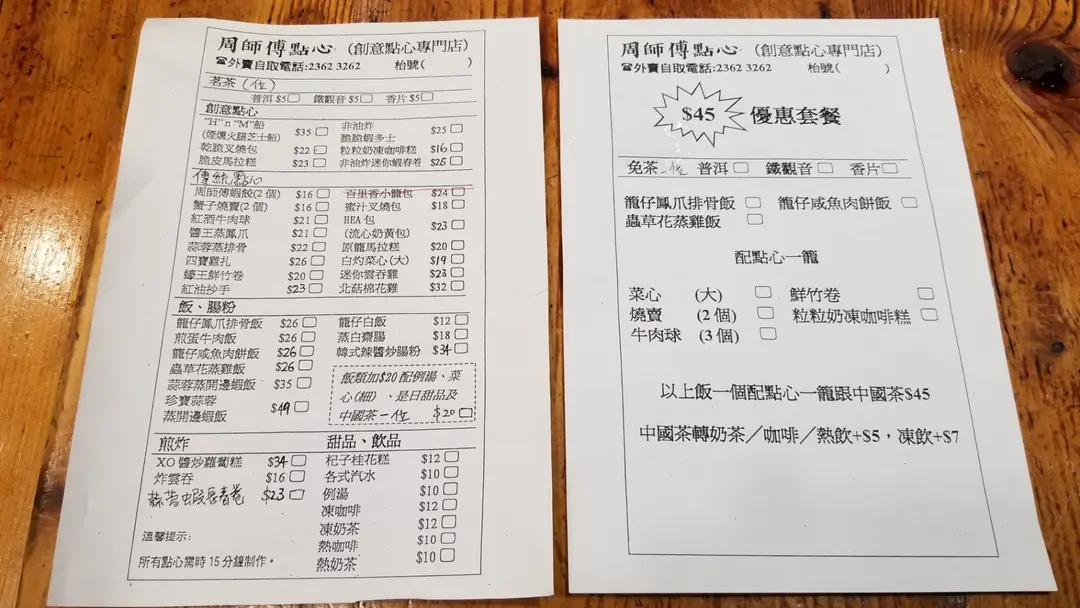 周師傅點心 (創意點心專門店)
☎外賣自取電話:2362 3262 枱號( )
茗茶 (位)
普洱 $5 鐵觀音 $5 香片 $5
創意點心
"H" n "M"船
(煙燻火腿芝士船) $35
乾脆叉燒包 $22
脆皮馬拉糕 $23
非油炸
脆脆蝦多士 $25
粒粒奶凍咖啡糕 $16
非油炸迷你蝦春卷 $25
傳統點心
周師傅蝦餃(2 個) $16
蟹子燒賣(2 個) $16
紅酒牛肉球 $21
醬王蒸鳳爪 $21
蒜蓉蒸排骨 $22
四寶雞扎 $26
蠔王鮮竹卷 $20
紅油抄手 $23
百里香小籠包 $24
蜜汁叉燒包 $18
HEA 包
(流心奶黃包) $23
原籠馬拉糕 $20
白灼菜心(大) $19
迷你雲吞雞 $23
北菇棉花雞 $32
飯、腸粉
籠仔鳳爪排骨飯 $26
煎蛋牛肉飯 $26
籠仔咸魚肉餅飯 $26
蟲草花蒸雞飯 $26
蒜蓉蒸開邊蝦飯 $35
珍寶蒜蓉
蒸開邊蝦飯 $49
籠仔白飯 $12
蒸白齋腸 $18
韓式辣醬炒腸粉 $34
飯類加$20 配例湯、菜
心(細)、是日甜品及
中國茶一位 $20
煎炸
XO 醬炒蘿蔔糕 $34
炸雲吞 $16
蒜茸蝦春卷 $23
溫馨提示:
所有點心需時 15 分鐘制作。
甜品、飲品
杞子桂花糕 $12
各式汽水 $10
例湯 $10
凍咖啡 $12
凍奶茶 $12
熱咖啡 $10
熱奶茶 $10
周師傅點心 (創意點心專門店)
☎外賣自取電話:2362 3262 枱號( )
$45 優惠套餐
免茶一位 普洱 鐵觀音 香片
籠仔鳳爪排骨飯 籠仔咸魚肉餅飯
蟲草花蒸雞飯
配點心一籠
菜心 (大) 鮮竹卷
燒賣 (2 個) 粒粒奶凍咖啡糕
牛肉球 (3 個)
以上飯一個配點心一籠跟中國茶$45
中國茶轉奶茶／咖啡／熱飲+$5，凍飲+$7